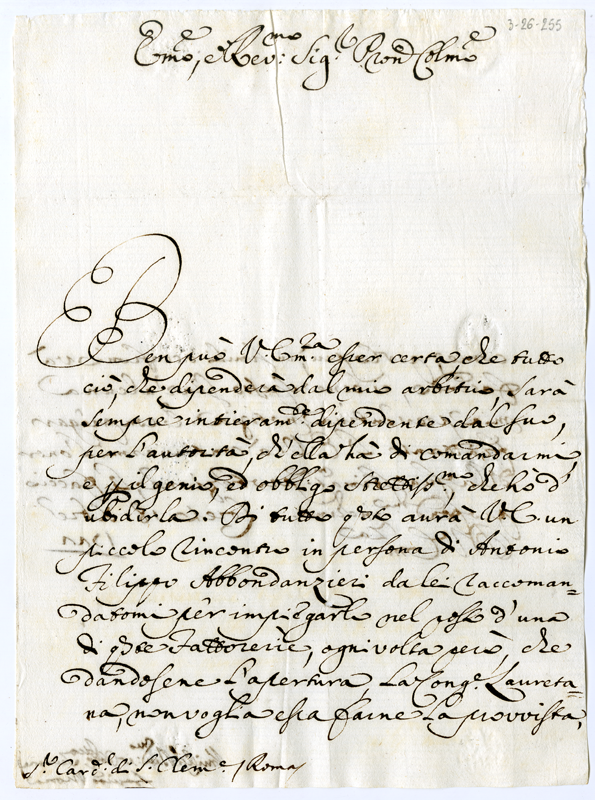 3-26-255
Em͞o, e Rev:mo Sig.r P͞ron Colmo
Ben può V. Em.za esser certa, che tutto
ciò, che dipenderà dal mio arbitrio, sarà
sempre intieram.te dipendente dal suo,
per l'autorità, ch'ella hà di comandarmi,
e p il genio, ed obbligo strettiss.mo, che hò d'
ubidirla. Di tutto q͞sto aurà V. E. un
piccolo rincontro in persona di Antonio
Filippo Abbondanzieri da lei raccoman=
datomi per impiegarlo nel posto d'una
di q͞ste Fattorerie, ogni volta però, che
dandosene l'apertura, la Cong.e Laureta=
na, non voglia essa farne la provvista,
S.r Card.l di S. Clem.e / Roma